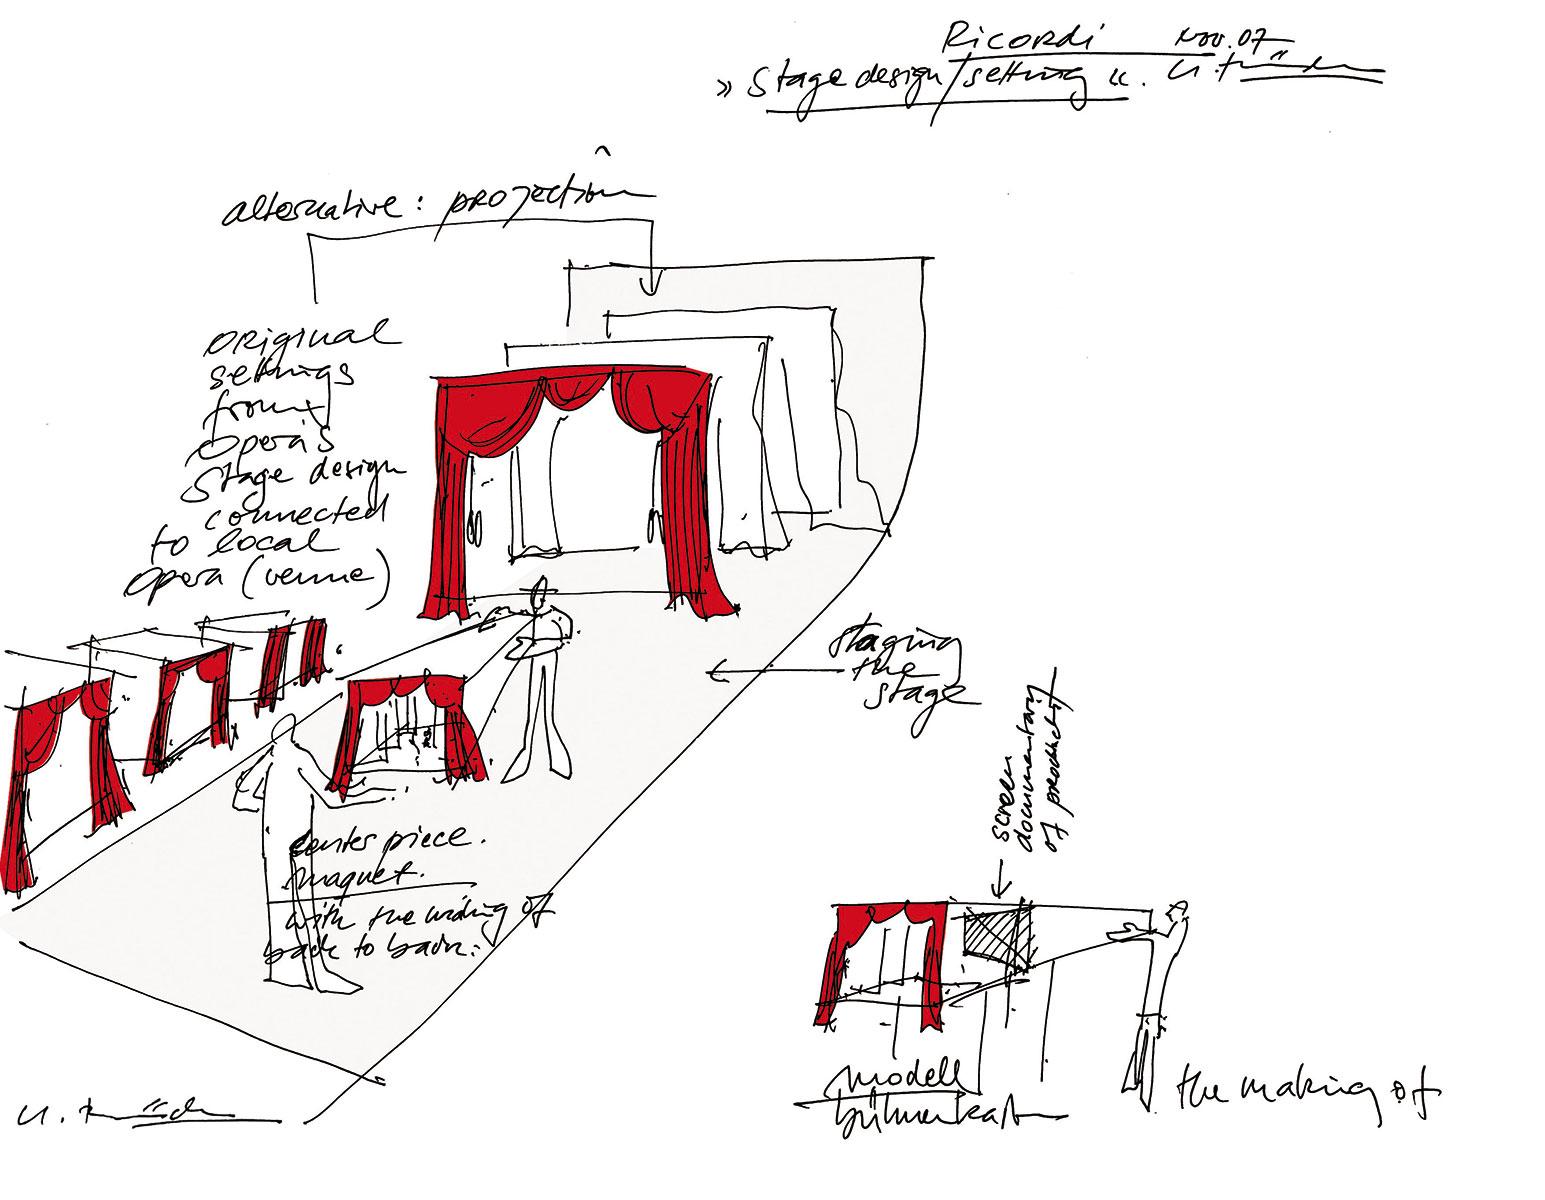 Ricordi Nov. 07
» Stage design/setting «.
alternative: projection
original
settings
from
opera's
stage design
connected
to local
opera (venue)
staging
the
stage
screen
documentary
of production
center piece.
maquet.
with the making of
back to back:
modell
bühnenkasten
the making of